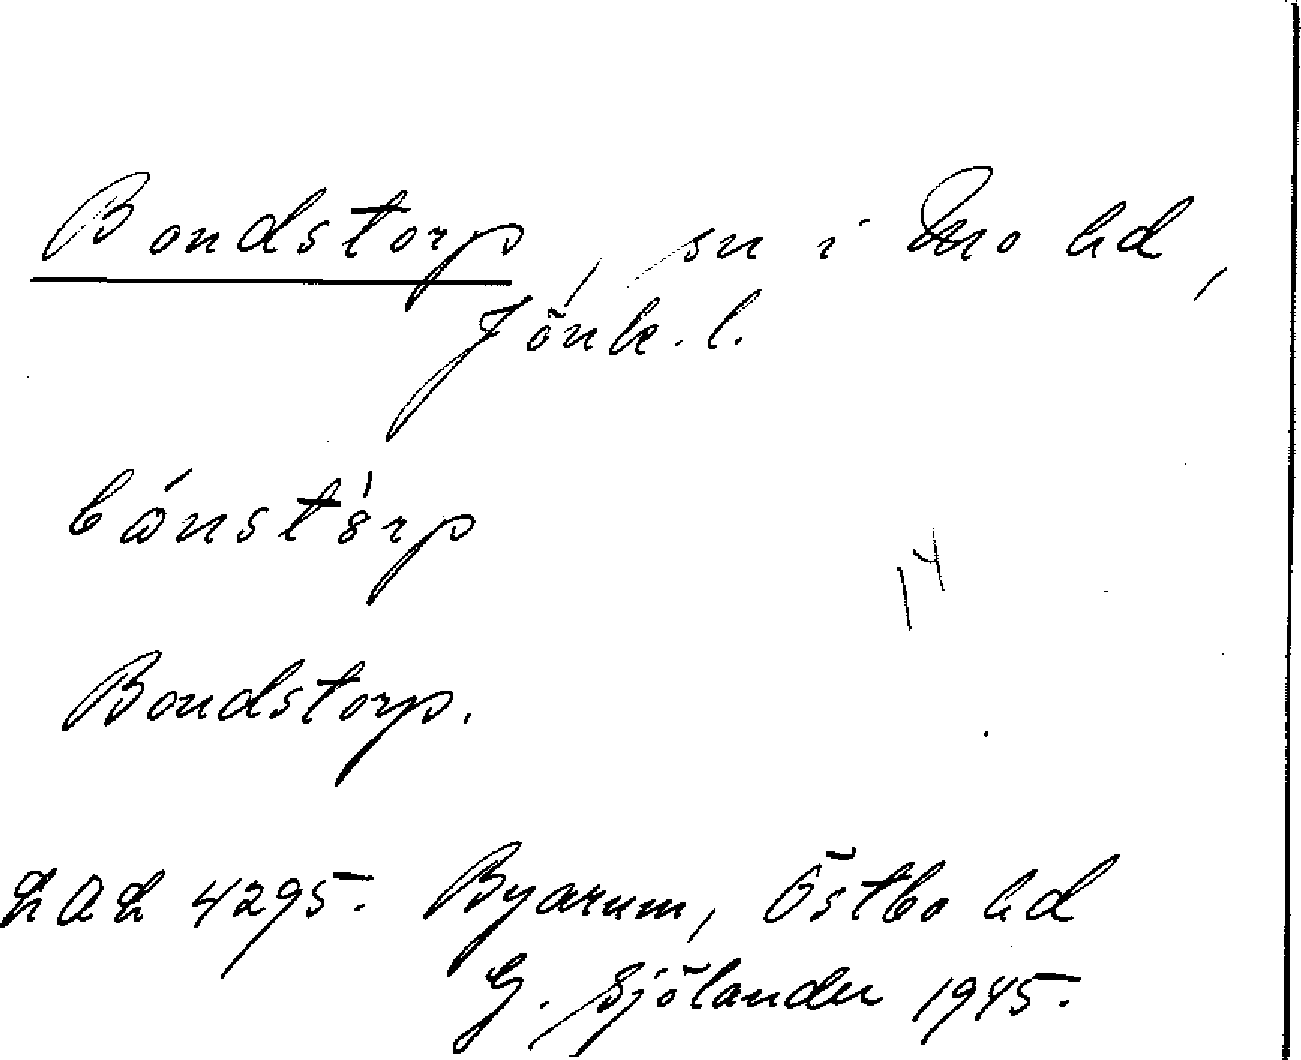 Bondstorp, sn i Mo hd,
Jönk. l.
bónstórp
14
Bondstorp.
LAL 4295. Byarum, Östbo hd
G. Sjölander 1945.